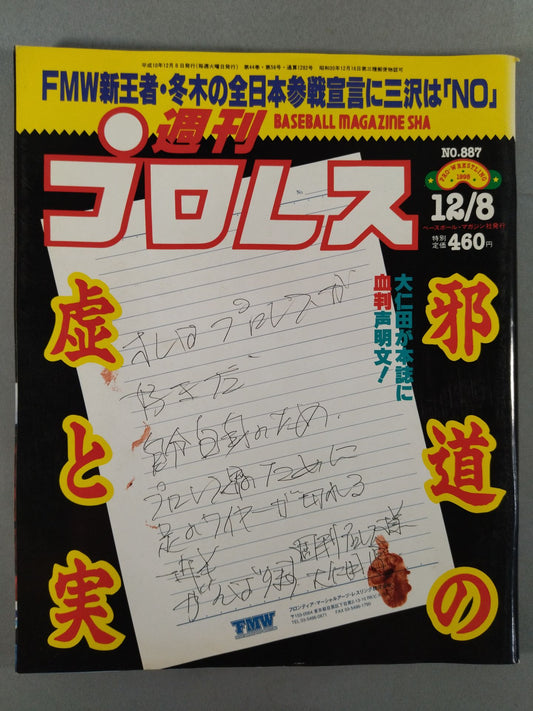 平成10年12月8日発行(毎週火曜日発行) 第44巻・第56号・通算1282号 昭和30年12月16日第三種郵便物認可
FMW新王者・冬木の全日本参戦宣言に三沢は「NO」
週刊
BASEBALL MAGAZINE SHA
プロレス
NO.887
PRO-WRESTLING
1998
12/8
ベースボール・マガジン社発行
特別定価460円
No.
大仁田が本誌に
血判声明文!
邪道の
虚と実
オレはプロレスが
好きだ
自分自身のため、
プロレス界のために
足のワイヤーが切れる
まで
がんばる
週刊プロレス様
大仁田厚
FMW
フロンティア・マーシャルアーツ・レスリング
TEL 03-5496-0671 FAX 03-5496-1799